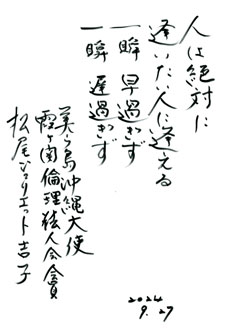 人は絶対に
逢いたい人に逢える
一瞬早過ぎず
一瞬遅過ぎず
美ら島沖縄大使
霞ヶ関倫理法人会会員
松尾ジュリエット吉子
2024
9.27